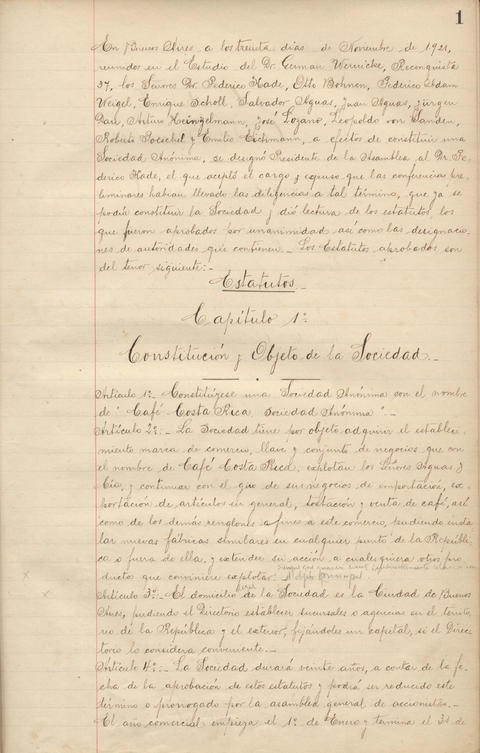 1
En Buenos Aires a los treinta dias de Noviembre de 1921,
reunidos en el Estudio del Dr. German Wernicke, Reconquista
37, los Señores Dr. Federico Kade, Otto Bohnen, Federico Adam
Weigel, Enrique Scholl, Salvador Aguas, Juan Aguas, Jürgen
Arturo Heinzelmann, José Lozano, Leopoldo von Sanden,
Roberto Poeschel y Emilio Eichmann, a efectos de constituir una
Sociedad Anónima, se designó Presidente de la Asamblea al Dr. Fe-
derico Kade, el que aceptó el cargo y expuso que las conferencias pre-
liminares habían llevado las diligencias a tal término, que ya se
podía constituir la Sociedad y dió lectura de los estatutos, los
que fueron aprobados por unanimidad así como las designacio-
nes de autoridades que contienen._ Los Estatutos aprobados son
del tenor siguiente:-
Estatutos_
Capítulo 1º
Constitución y Objeto de la Sociedad._
Artículo 1º- Constitúyese una Sociedad Anónima con el nombre
de "Café Costa Rica, Sociedad Anónima"._
Artículo 2º._ La Sociedad tiene por objeto adquirir el estableci-
miento marca de comercio, llave y conjunto de negocios que con
el nombre de Café Costa Rica, explotan los Señores Aguas y
Cía, y continuar con el giro de sus negocios de importación, ex-
portación de artículos en general, tostación y venta de café, así
como de los demás renglones afines a este comercio, pudiendo insta-
lar nuevas fábricas similares en cualquier punto de la Repúbli-
ca o fuera de ella, y extender su acción a cualesquiera otros pro-
ductos que conviniere explotar.
Artículo 3º._ El domicilio de la Sociedad es la Ciudad de Buenos
Aires, pudiendo el Directorio establecer sucursales o agencias en el territo-
rio de la República y el exterior, fijándoles un capital, si el Direc-
torio lo considera conveniente._
Artículo 4º._ La Sociedad durará veinte años, a contar de la fe-
cha de la aprobación de estos estatutos y podrá ser reducido este
término o prorrogado por la asamblea general de accionistas._
El año comercial empieza el 1º de Enero y termina el 31 de